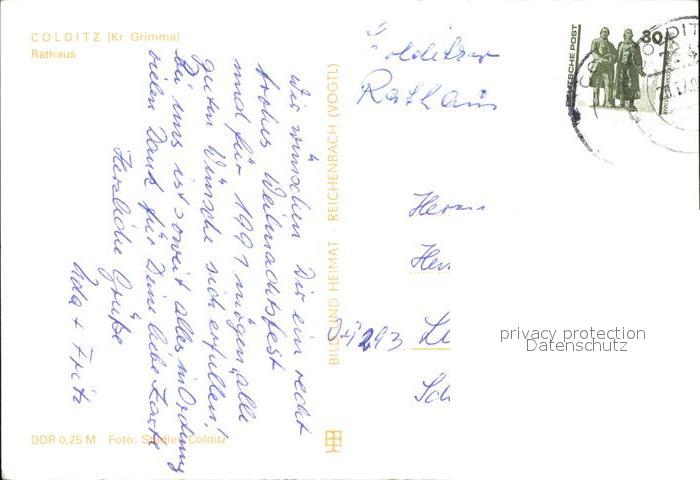 COLDITZ (Kr. Grimma)
Rathaus
Wir wünschen Dir ein recht
frohes Weihnachtsfest
und für 1991 mögen alle
guten Wünsche sich erfüllen!
Bei uns ist soweit alles in Ordnung
vielen Dank für Deine liebe Karte
Herzliche Grüße
Ada + Fritz
DDR 0,25 M Foto: Stadler, Colditz
BILD UND HEIMAT · REICHENBACH (VOGTL)
Colditzer
Rathaus
DEUTSCHE POST
80
Herrn
Her
293 Le
Sch
privacy protection
Datenschutz